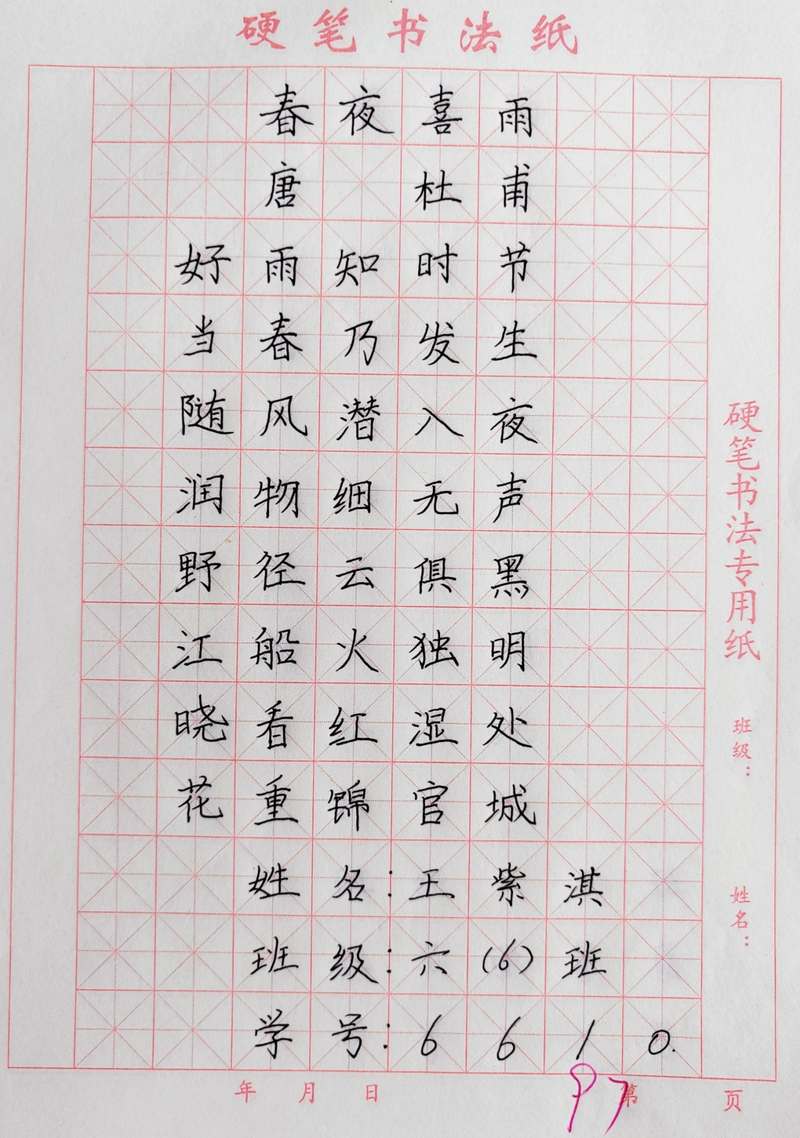 硬笔书法纸
春夜喜雨
唐 杜甫
好雨知时节
当春乃发生
随风潜入夜
润物细无声
野径云俱黑
江船火独明
晓看红湿处
花重锦官城
姓名:王紫淇
班级:六(6)班
学号:6610.
硬笔书法专用纸
班级:
姓名:
年 月 日
第 页
97